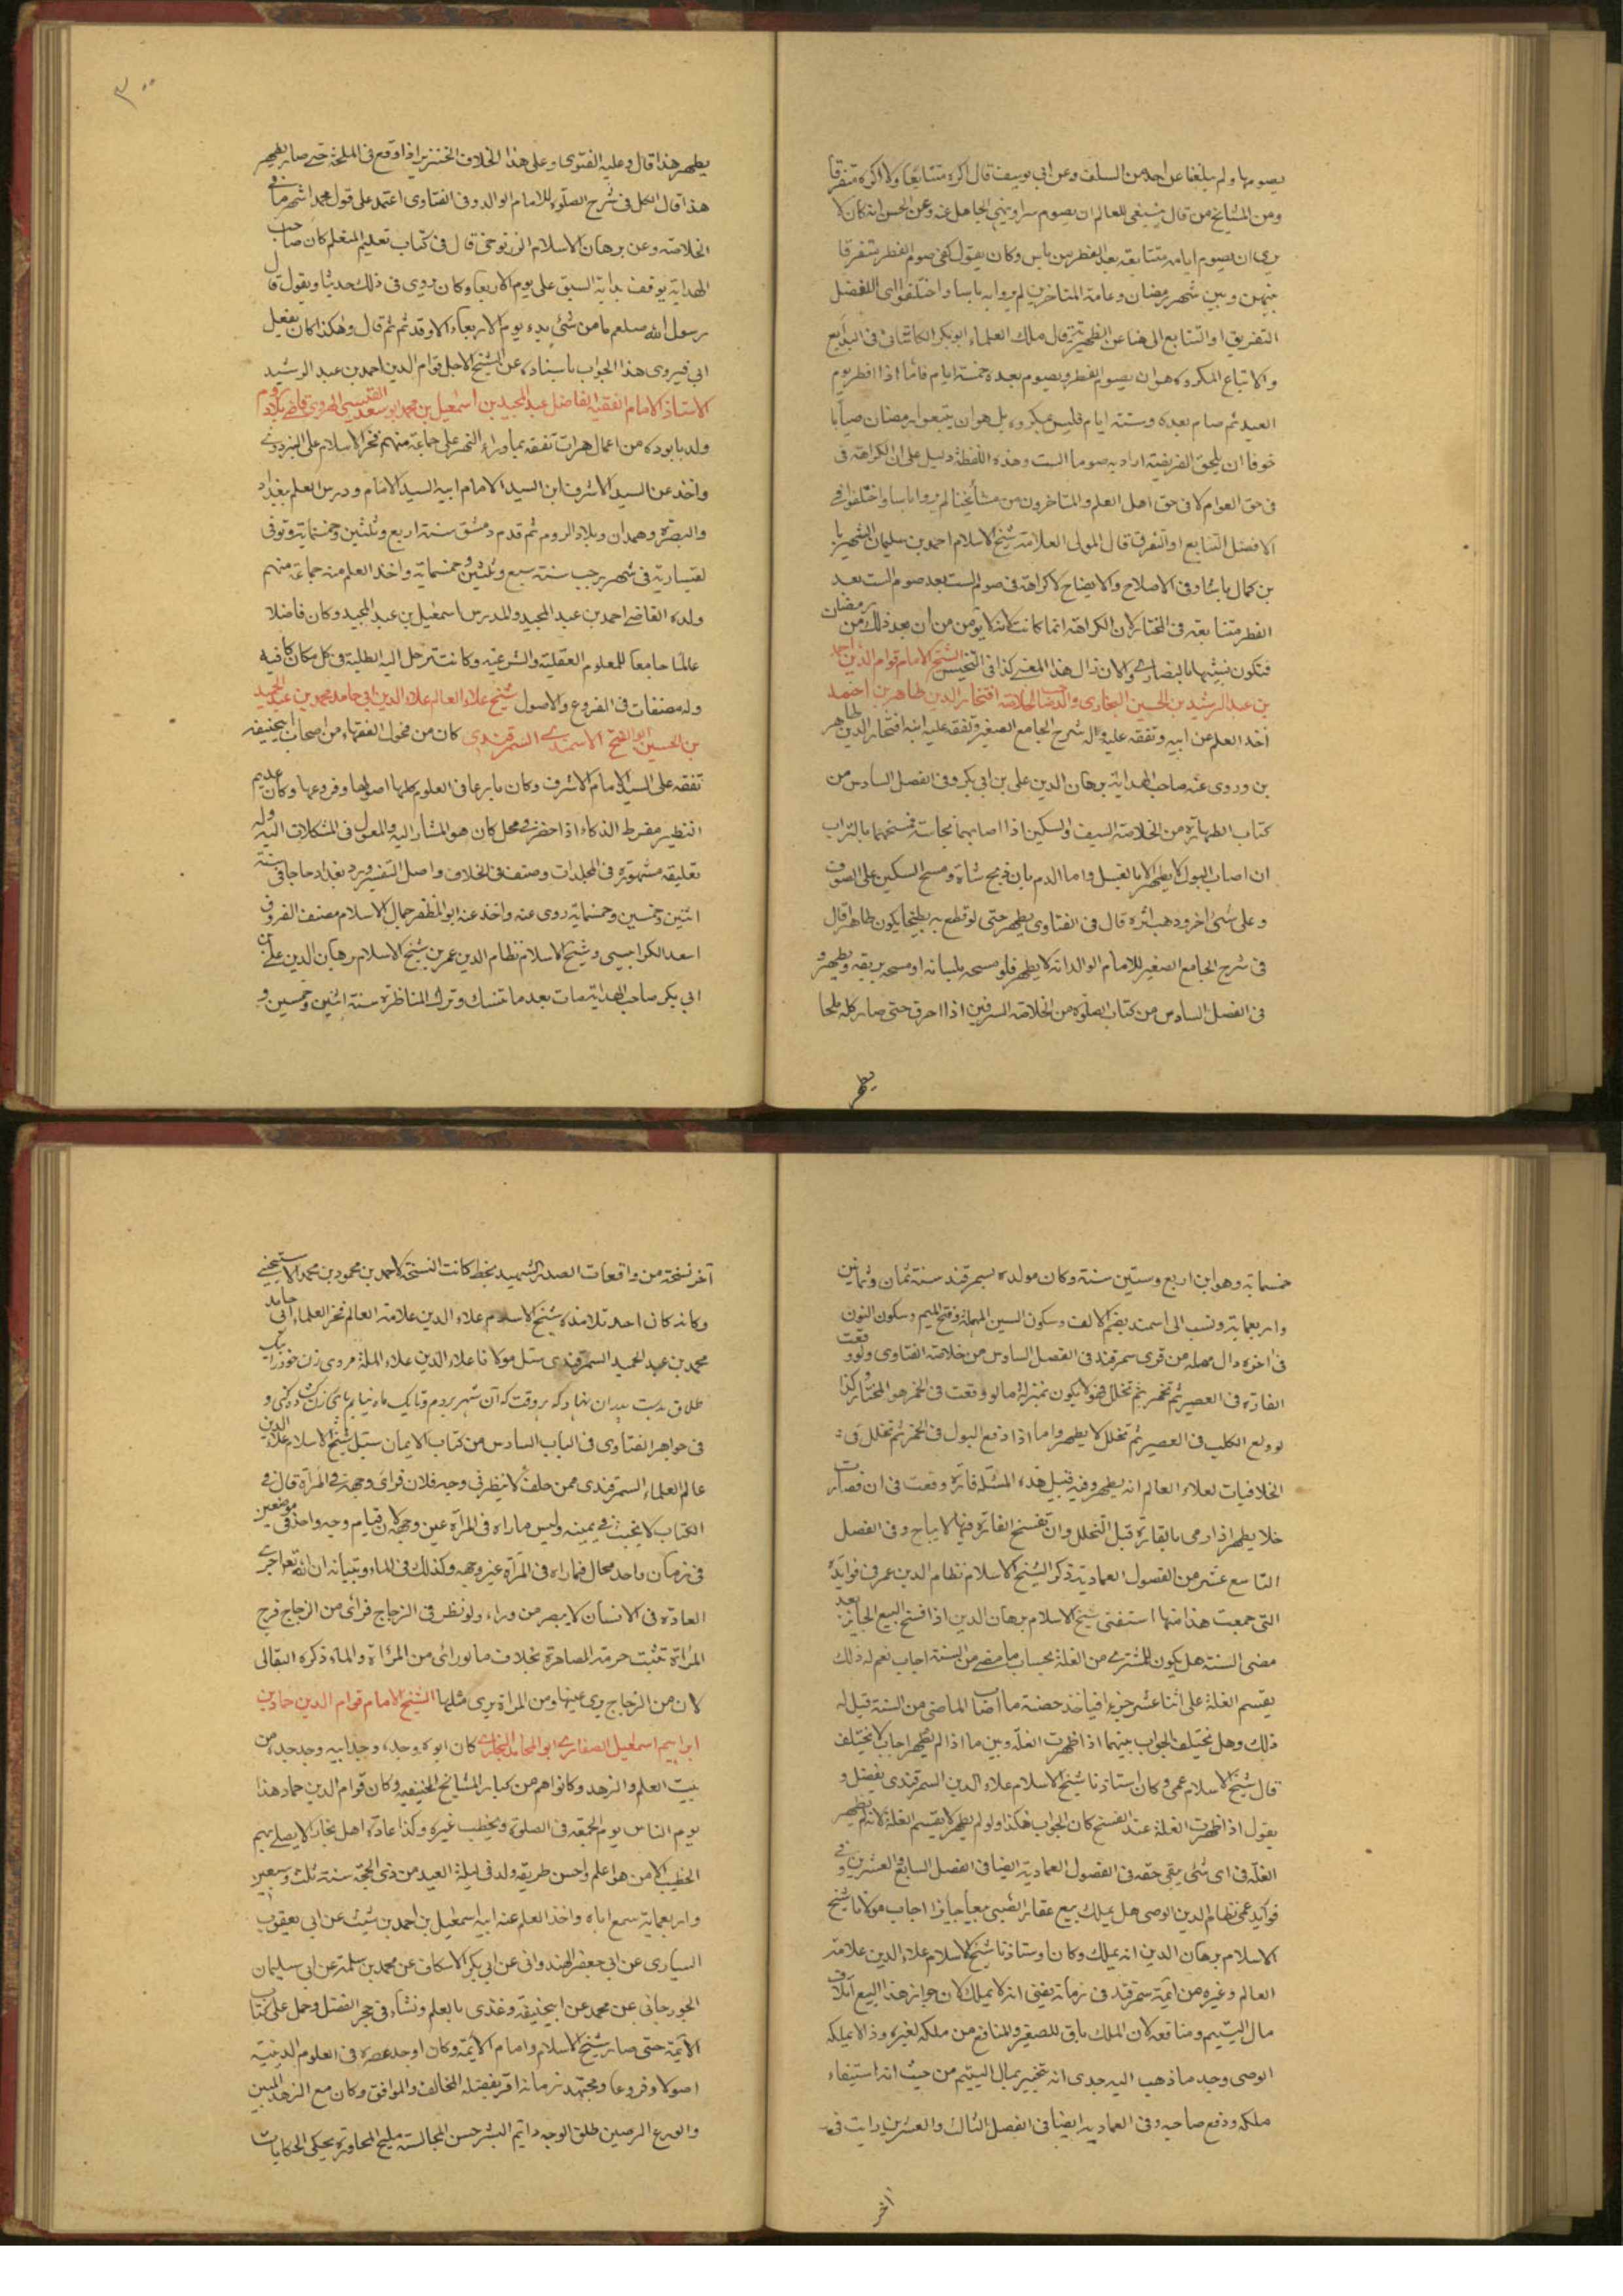 يصومها ولم يبلغنا عن احد من السلف وعن ابي يوسف قال اكره متتابعا ولا اكره متفرقا
ومن المشايخ من قال ينبغي للعالم ان يصوم سرا وينهى الجاهل عنه وعن الحسن انه كان لا
يرى ان يصوم ايامه متتابعة بعد الفطر من باس وكان يقول كفى صوم الفطر متفرقا
بينهن وبين شهر رمضان وعامة المتاخرين لم يروا به باسا واختلفوا الافضل
التفريق او التتابع الى هنا عن الظهيرية قال ملك العلماء ابو بكر الكاشاني في البدايع
والاتباع المكروه هو ان يصوم الفطر ويصوم بعده خمسة ايام فاما اذا افطر يوم
العيد ثم صام بعده وستة ايام فليس بمكروه بل هو ان يتبعوا رمضان صياما
خوفا ان يلحق الفريضة اراد به صوما الست وهذه اللفظة دليل على ان الكراهة في
في حق العوام لا في حق اهل العلم والمتاخرون من مشائخنا لم يروا باسا واختلفوا في
الافضل التتابع او التفرق قال المولى العلامة شيخ الاسلام احمد بن سليمان الشهير با
بن كمال پاشا وفي الاصلاح والايضاح لا كراهة في صوم الست بعد صوم الست بعد
الفطر متتابعة في المختار لان الكراهة انما كانت لانه لا يؤمن من ان بعد ذلك من رمضان
فتكون تشبيها بالنصارى والان زال هذا المعنى كذا في التجنيس الشيخ الامام قوام الدين احمد
بن عبد الرشيد بن الحسين البخاري والد صاحب الخلاصة افتخار الدين طاهر بن احمد
اخذ العلم عن ابيه وتفقه عليه وله شرح الجامع الصغير وتفقه عليه ابنه افتخار الدين طاهر
بن وروى عنه صاحب الهداية برهان الدين علي بن ابي بكر وفي الفصل السادس من
كتاب الطهارة من الخلاصة السيف والسكين اذا اصابهما نجاسة فمسحهما بالتراب
ان اصاب البول لا يطهر الا بالغسل واما الدم بان ذبح شاة ومسح السكين على الصوف
وعلى شئ اخر وذهب اثره قال في الفتاوى يطهر حتى لو قطع به بطيخا يكون طاهرا قال
في شرح الجامع الصغير للامام الوالد انه لا يطهر فلو مسحه بلسانه او مسحه بريقه ويطهر و
في الفصل السادس من كتاب الصلوة من الخلاصة السرقين اذا احرق حتى صار كله ملحا
يطهر
٣٠٠
يطهر هذا قال وعليه الفتوى وعلى هذا الخلاف الخنزير اذا وقع في الملحة حتى صار يطهر
هذا قال الكل في شرح الصلوة للامام الوالد وفي الفتاوى اعتمد على قول محمد اشهر ما في
الخلاصة وعن برهان الاسلام الزرنوجي قال في كتاب تعليم المتعلم كان صاحب
الهداية يوقف بداية السبق على يوم الاربعا وكان يروى في ذلك حديثا ويقول قال
رسول الله صلعم ما من شئ بدء يوم الاربعاء الا وقد تم ثم قال وهكذا كان يفعل
ابي فيروى هذا الجواب باسناده عن الشيخ الاجل قوام الدين احمد بن عبد الرشيد
الاستاذ الامام الفقيه الفاضل عبد المجيد بن اسمعيل بن محمد ابو سعد القيسي الهروي قاضي بلاد الروم
ولد باوبه من اعمال هرات تفقه بماوراء النهر على جماعة منهم فخر الاسلام علي البزدوي
واخذ عن السيد الاشرف ابن السيد الامام ابيه السيد الامام ودرس العلم ببغداد
والبصرة وهمدان وبلاد الروم ثم قدم دمشق سنة اربع وثلثين وخمسماية وتوفى
لقيسارية في شهر رجب سنة سبع وثلثين وخمسماية واخذ العلم منه جماعة منهم
ولده القاضي احمد بن عبد المجيد والمدرس اسمعيل بن عبد المجيد وكان فاضلا
عالما جامعا للعلوم العقلية والشرعية وكانت ترحل اليه الطلبة في كل مكان كافيه
وله مصنفات في الفروع والاصول شيخ علاء العالم علاء الدين ابي حامد محمد بن عبد الحميد
بن الحسين ابو الفتح الاسمندي السمرقندي كان من فحول الفقهاء من اصحاب ابيحنيفة
تفقه على السيد الامام الاشرف وكان بارعا في العلوم كلها اصولها وفروعها وكان عديم
النظير مفرط الذكاء اذا حضر في محل كان هو المشار اليه والمعول في المشكلات اليه وله
تعليقة مشهورة في المجلدات وصنف في الخلاف واصل التفسير ورد بغداد حاجا في سنة
اثنين وخمسين وخمسماية روى عنه واخذ عنه ابو المظفر جمال الاسلام مصنف الفروق
اسعد الكرابيسي وشيخ الاسلام نظام الدين عمر بن شيخ الاسلام برهان الدين علي بن
ابي بكر صاحب الهداية مات بعد ما تنسك وترك المناظرة سنة اثنين وخمسين و
خمسماية وهو ابن اربع وستين سنة وكان مولده بسمرقند سنة ثمان وثمانين
واربعماية ونسب الى اسمند بضم الالف وسكون السين المهملة وفتح الميم وسكون النون
في اخره دال مهملة من قرى سمرقند في الفصل السادس من خلاصة الفتاوى ولو وقعت
الفارة في العصير ثم تخمر ثم تخلل فهو لا يكون بمنزلة ما لو وقعت في الخمر هو المختار وكذا
لو ولغ الكلب في العصير ثم تخلل لا يطهر واما اذا وقع البول في الخمر ثم تخلل في
الخلافيات لعلاء العالم انه يطهر وفيه قبيل هذه المسئلة فارة وقعت في ان فصارت
خلا يطهر اذا رمى بالفارة قبل التخلل وان تفسخ الفارة فيها لا يباح وفي الفصل
التاسع عشر من الفصول العمادية ذكر الشيخ الاسلام نظام الدين عمر في فوايده
التي جمعت هذا منها استفتى شيخ الاسلام برهان الدين اذا فسخ البيع الجايز بعد
مضي السنة هل يكون للمشتري من الغلة بحساب ما مضى من السنة اجاب نعم له ذلك
يقسم الغلة على اثنا عشر جزءا فياخذ حصة ما اصاب الماضي من السنة قيل له
ذلك وهل يختلف الجواب بينهما اذا ظهرت الغلة وبين ما اذا لم يظهر اجاب لا يختلف
قال شيخ الاسلام عمي وكان استاذنا شيخ الاسلام علاء الدين السمرقندي يفصل و
يقول اذا ظهرت الغلة عند الفسخ كان الجواب هكذا ولو لم يظهر لا يقسم الغلة لانه لم يظهر
الغلة في اى شئ يبقى حقه في الفصول العمادية ايضا في الفصل السابع والعشرين وفي
فوايد عمي نظام الدين الوصي هل يملك بيع عقار الصبي بيعا جايزا اجاب مولانا شيخ
الاسلام برهان الدين انه يملك وكان اوستاذنا شيخ الاسلام علاء الدين علامة
العالم وغيره من ائمة سمرقند في زمانه يفتى انه لا يملك لان جواز هذا البيع اتلاف
مال اليتيم ومنافعه لان الملك باق للصغير والمنافع من ملكه لغيره وذا لا يملكه
الوصي وجد ما ذهب اليه جدى انه تخيير بمال اليتيم من حيث انه استيفاء
ملكه ودفع صاحبه وفي العمادية ايضا في الفصل الثالث والعشرين رايت في
آخر
آخر نسخة من واقعات الصدر الشهيد بخط كانت النسخة لاحمد بن محمود بن محمد الاستيجني
وكانه كان احد تلامذة شيخ الاسلام علاء الدين علامة العالم فخر العلماء ابي حامد
محمد بن عبد الحميد السمرقندي سئل مولانا علاء الدين علاء الملة مردى زن خود را يك
طلاق بدست پدر ان نهاد كه هر وقت كه آن شهر بروم وتا يك ماه نيايم پاى زن كشاده كنى و
في جواهر الفتاوى في الباب السادس من كتاب الايمان سئل شيخ الاسلام علاء الدين
عالم العلماء السمرقندي ممن حلف لا ينظر في وجه فلان فراى وجهه في المرآة قال في
الكتاب لا يحنث في يمينه وليس ماراه في المرآة عين وجهه لان قيام وجه واحد في موضعين
في زمان واحد محال فماراه في المرآة غير وجهه وكذلك في الماء وتبيانه ان الله تعالى اجرى
العادة في الانسان لا يبصر من وراء ولو نظر في الزجاج فرأى من الزجاج فرج
المرأة تثبت حرمة المصاهرة بخلاف ما لو رائ من المرآة والماء ذكره البقالي
لان من الزجاج يرى عينها ومن المرآة يرى مثلها الشيخ الامام قوام الدين حماد بن
ابراهيم اسمعيل الصفاري ابو المحامد البخاري كان ابوه وجده وجد ابيه وجد جده من
بيت العلم والزهد وكانوا هم من كبار المشايخ الحنفية وكان قوام الدين حماد هذا
يوم الناس يوم الجمعة في الصلوة ويخطب غيره وكذا عادة اهل بخارا لا يصلي بهم
الخطيب الا من هو اعلم واحسن طريقة ولد في ليلة العيد من ذي الحجة سنة ثلث وسبعين
واربعماية سمع اباه واخذ العلم عنه ابيه اسمعيل بن احمد بن شيث عن ابي يعقوب
السياري عن ابي جعفر الهندواني عن ابي بكر الاسكاف عن محمد بن سلمة عن ابي سليمان
الجوزجاني عن محمد عن ابيحنيفة وغذى بالعلم ونشاء في حجر الفضل وحمل على كتاب
الائمة حتى صار شيخ الاسلام وامام الائمة وكان اوحد عصره في العلوم الدينية
اصولا وفروعا ومجتهد زمانه اقر بفضله المخالف والموافق وكان مع الزهد المبين
والورع الرصين طلق الوجه دايم البشر حسن المجالسة مليح المحاورة يحكى الحكايات